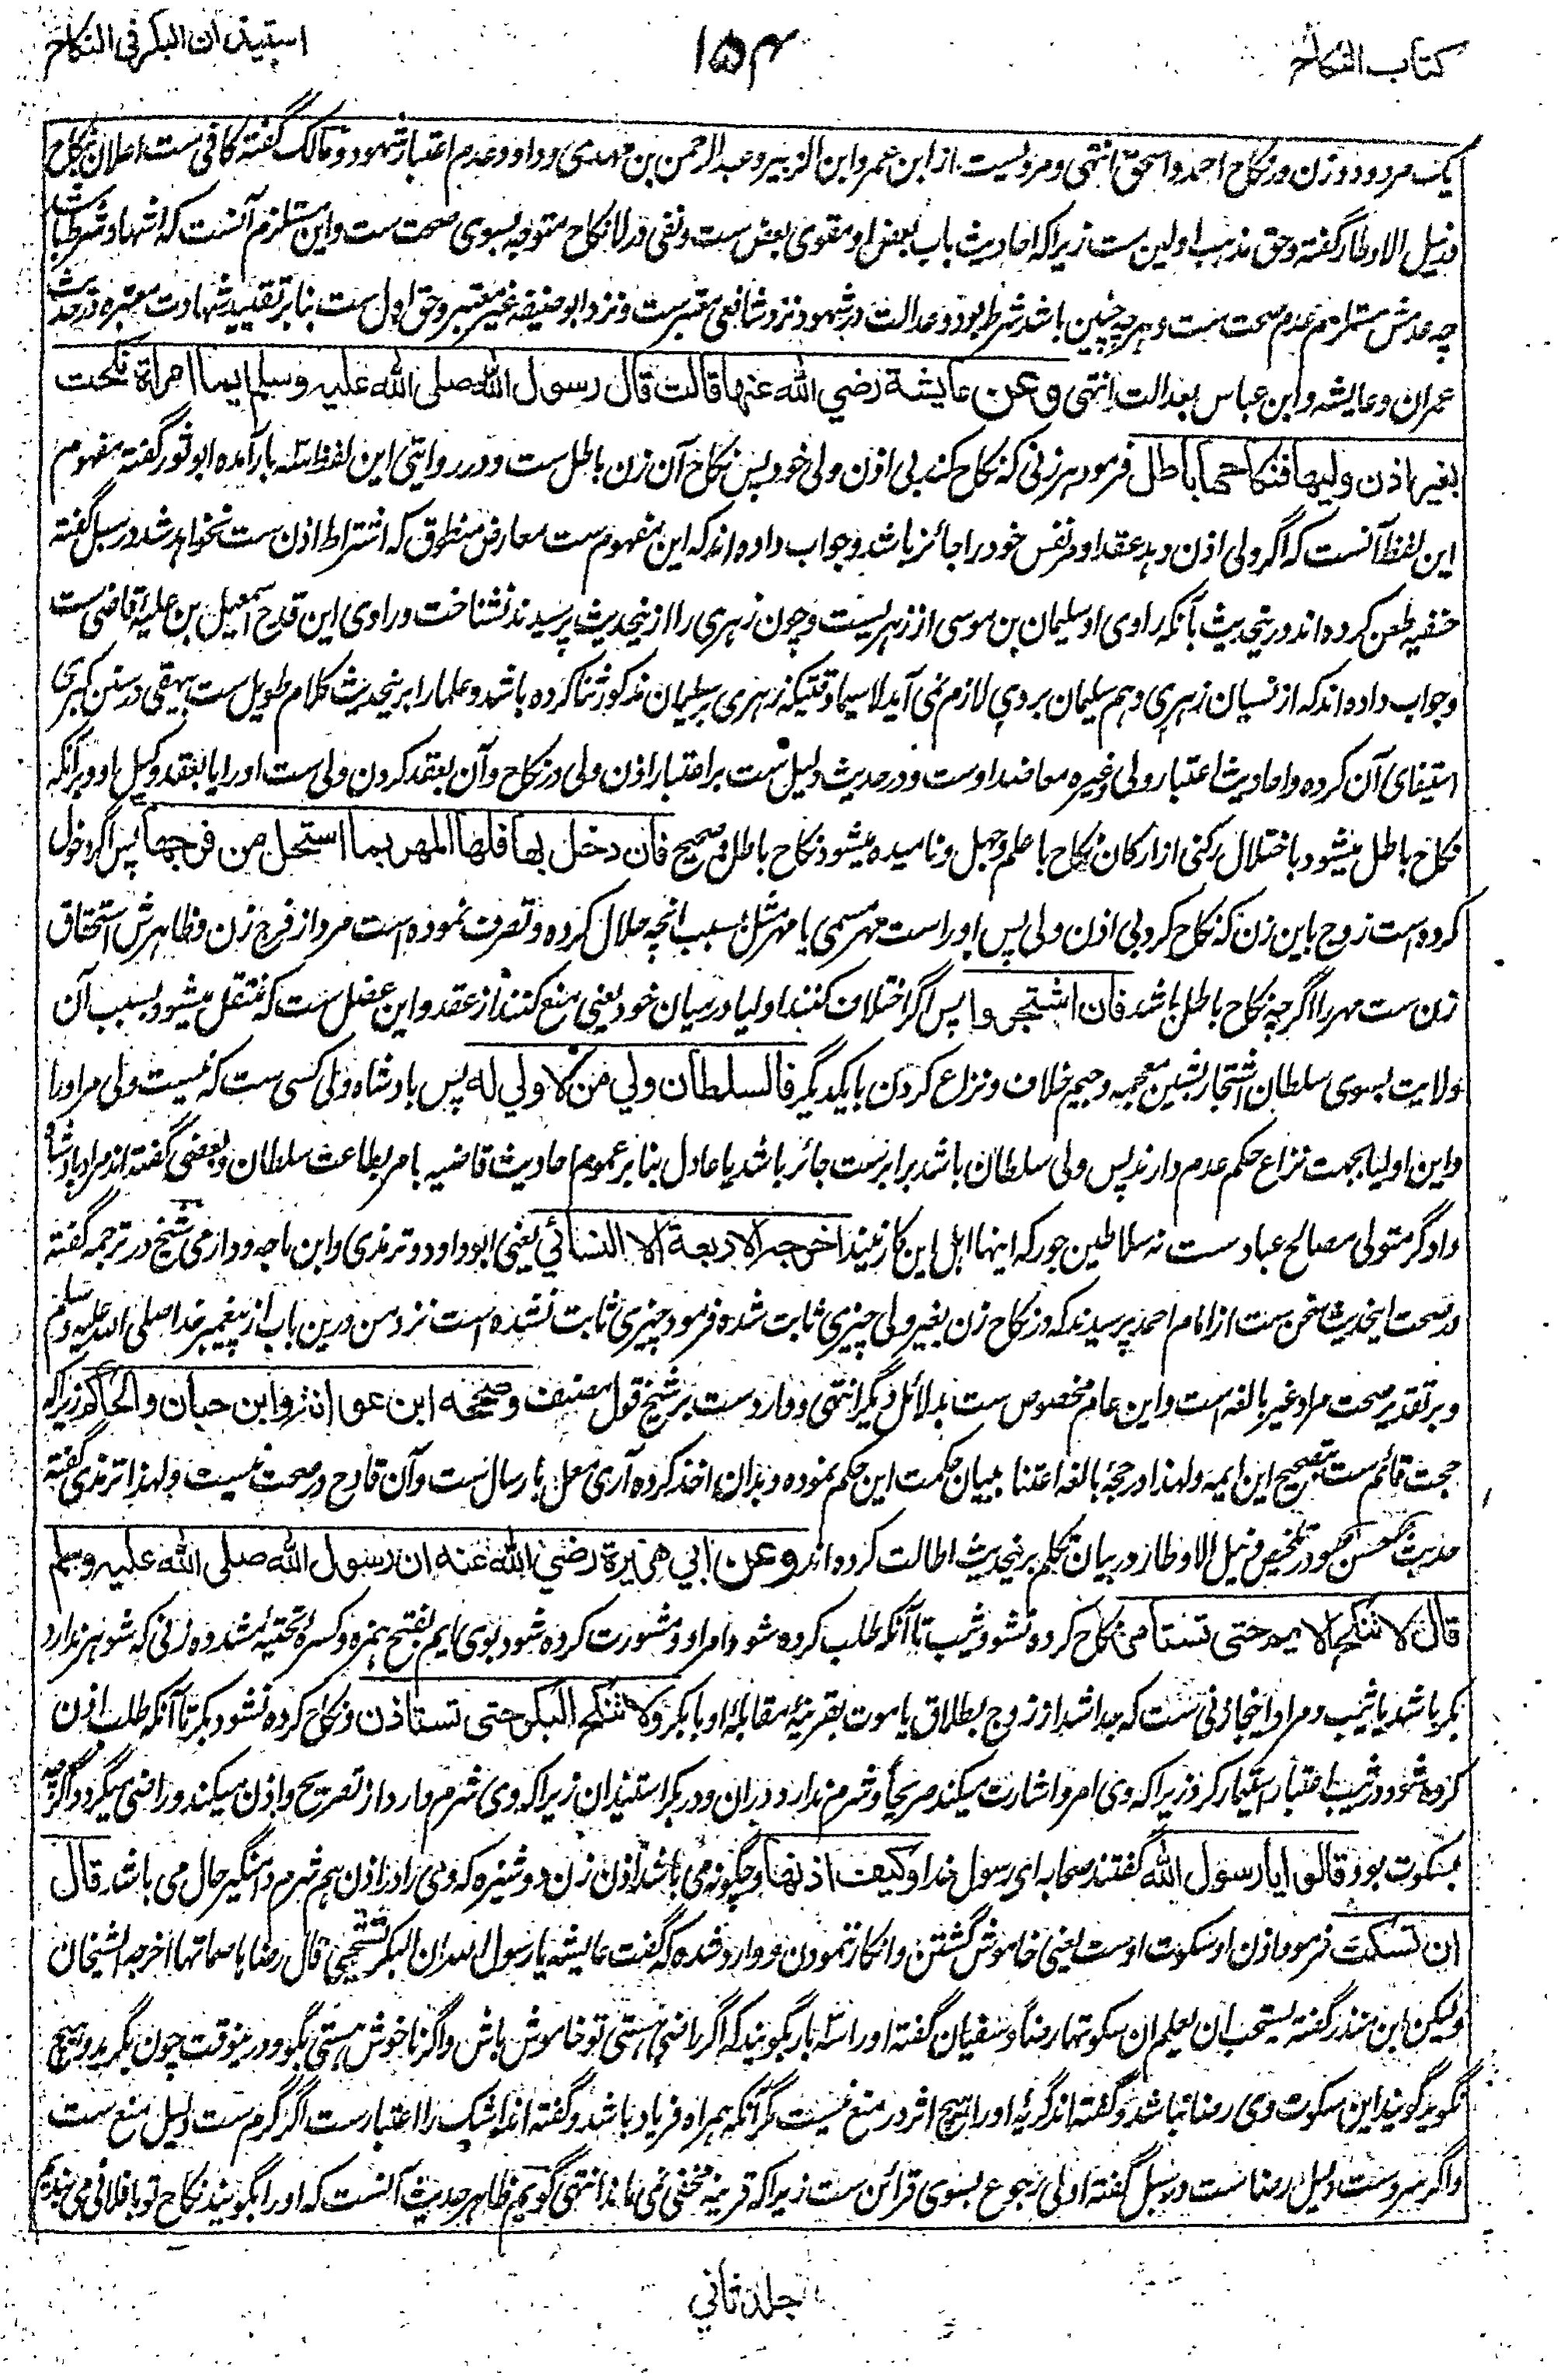 كتاب النكاح
۱۵۴
استیذان البکر فی النکاح
یک مرد و دو زن در نکاح احمد و اسحق انتهی و مرویست از ابن عمر و ابن الزبیر و عبدالرحمن بن مهدی و داود عدم اعتبار شهود و مالک گفته کافی ست اعلان نکاح
در نیل الاوطار گفته و حق مذهب اولین ست زیراکه احادیث باب بعض او مقوی بعض ست و نفی در لانکاح متوجه بسوی صحت ست و این مستلزم آنست که اشهاد شرط باشد
چه عدمش مستلزم عدم صحت ست و هرچه چنین باشد شرط بود و عدالت در شهود نزد شافعی معتبر ست و نزد ابوحنیفه غیر معتبر و حق اول ست بنابر تقیید شهادت معتبره در حدیث
عمران و عایشه و ابن عباس بعدالت انتهی وعن عايشة رضي الله عنها قالت قال رسول الله صلى الله عليه وسلم ايما امراة نكحت
بغير اذن وليها فنكاحها باطل فرمود هر زنی که نکاح کند بی اذن ولی خود پس نکاح آن زن باطل ست و در روایتی این لفظ سه بار آمده ابو ثور گفته مفهوم
این لفظ آنست که اگر ولی اذن دهد عقد او مر نفس خود را جائز باشد و جواب داده اند که این مفهوم ست معارض منطوق که اشتراط اذن ست نخواهد شد در سبل گفته
حنفیه طعن کرده اند درینحدیث بآنکه راوی او سلیمان بن موسی از زهریست و چون زهری را ازینحدیث پرسیدند نشناخت و راوی این قدح اسمعیل بن علیة قاضی ست
و جواب داده اند که از نسیان زهری وهم سلیمان بروی لازم نمی آید لاسیما وقتیکه زهری بر سلیمان مذکور ثنا کرده باشد و علما را برینحدیث کلام طویل ست بیهقی در سنن کبری
استیفای آن کرده و احادیث اعتبار ولی وغیره معاضد اوست و در حدیث دلیل ست بر اعتبار اذن ولی در نکاح و آن بعقد کردن ولی ست او را یا بعقد وکیل او و برآنکه
نکاح باطل میشود باختلال رکنی از ارکان نکاح با علم و جهل و نامیده میشود نکاح باطل و صحیح فان دخل بها فلها المهر بما استحل من فرجها پس اگر دخول
کرده ست زوج باین زن که نکاح کرد بی اذن ولی پس او راست مهر مسمی یا مهر مثل بسبب انچه حلال کرده و تصرف نموده است مرد از فرج زن و ظاهرش استحقاق
زن ست مهر را اگرچه نکاح باطل باشد فان اشتجروا پس اگر اختلاف کنند اولیا درمیان خود یعنی منع کنند از عقد و این عضل ست که منتقل میشود بسبب آن
ولایت بسوی سلطان اشتجار بشین معجمه و جیم خلاف و نزاع کردن بایکدیگر فالسلطان ولي من لا ولي له پس بادشاه ولی کسی ست که نیست ولی مر او را
و این اولیا بجهت نزاع حکم عدم دارند پس ولی سلطان باشد برابرست جائر باشد یا عادل بنابر عموم احادیث قاضیه بامر بطاعت سلطان و بعضی گفته اند مراد بادشاه
دادگر متولی مصالح عباد ست نه سلاطین جور که اینها اهل این کار نیند اخرجه الاربعة الا النسائي یعنی ابوداود و ترمذی و ابن ماجه و دارمی شیخ در ترجمه گفته
در صحت اینحدیث سخن ست از امام احمد پرسیدند که در نکاح زن بغیر ولی چیزی ثابت شده فرمود چیزی ثابت نشده است نزد من درین باب از پیغمبر خدا صلی الله علیه وسلم
و بر تقدیر صحت مراد غیر بالغه است و این عام مخصوص ست بدلائل دیگر انتهی و وارد ست بر شیخ قول مصنف وصححه ابن عوانة وابن حبان والحاكم زیراکه
حجت قائم ست بتصحیح این ایمه ولهذا در حجة بالغه اعتنا ببیان حکمت این حکم نموده و بدان اخذ کرده آری معل بارسال ست و آن قادح در صحت نیست ولهذا ترمذی گفته
حدیث حسن و در تلخیص و نیل الاوطار در بیان تکلم برینحدیث اطالت کرده اند وعن ابي هريرة رضي الله عنه ان رسول الله صلى الله عليه وسلم
قال لا تنكح الايم حتى تستامر نکاح کرده نشود ثیب تا آنکه طلب کرده شود امر او و مشورت کرده شود بوی ایم بفتح همزه و کسرۀ تحتیۀ مشدده زنی که شوهر ندارد
بکر باشد یا ثیب و مراد اینجا زنی ست که جدا شد از زوج بطلاق یا موت بقرینۀ مقابلۀ او بابکر ولا تنكح البكر حتى تستاذن و نکاح کرده نشود بکر تا آنکه طلب اذن
کرده شود و در ثیب اعتبار استیمار کرد زیراکه وی امر و اشارت میکند صریحاً و شرم ندارد دران و در بکر استیذان زیراکه وی شرم دارد از تصریح و اذن میکند و راضی میگردد اگرچه
بسکوت بود قالوا يا رسول الله گفتند صحابه ای رسول خدا وكيف اذنها و چگونه می باشد اذن زن دوشیزه که وی را در اذن هم شرم دامنگیر حال می باشد قال
ان تسكت فرمود اذن او سکوت اوست یعنی خاموش گشتن و انکار ننمودن و وارد شده که گفت عایشه یا رسول الله ان البکر تستحیی قال رضاها صماتها اخرجه الشیخان
ولیکن ابن منذر گفته یستحب ان یعلم ان سکوتها رضا و سفیان گفته او را سه بار بگویند که اگر راضی هستی تو خاموش باش و اگر ناخوش هستی بگو و درینوقت چون بگرید و هیچ
نگوید گویند این سکوت وی رضا نباشد و گفته اند گریۀ او را هیچ اثر در منع نیست مگر آنکه همراه فریاد باشد و گفته اند اشک را اعتبار ست اگر گرم ست دلیل منع ست
و اگر سرد ست دلیل رضا ست و در سبل گفته اولی رجوع بسوی قرائن ست زیراکه قرینه مخفی نمی ماند انتهی گویم ظاهر حدیث آنست که او را بگویند نکاح تو با فلانی می
جلد ثاني